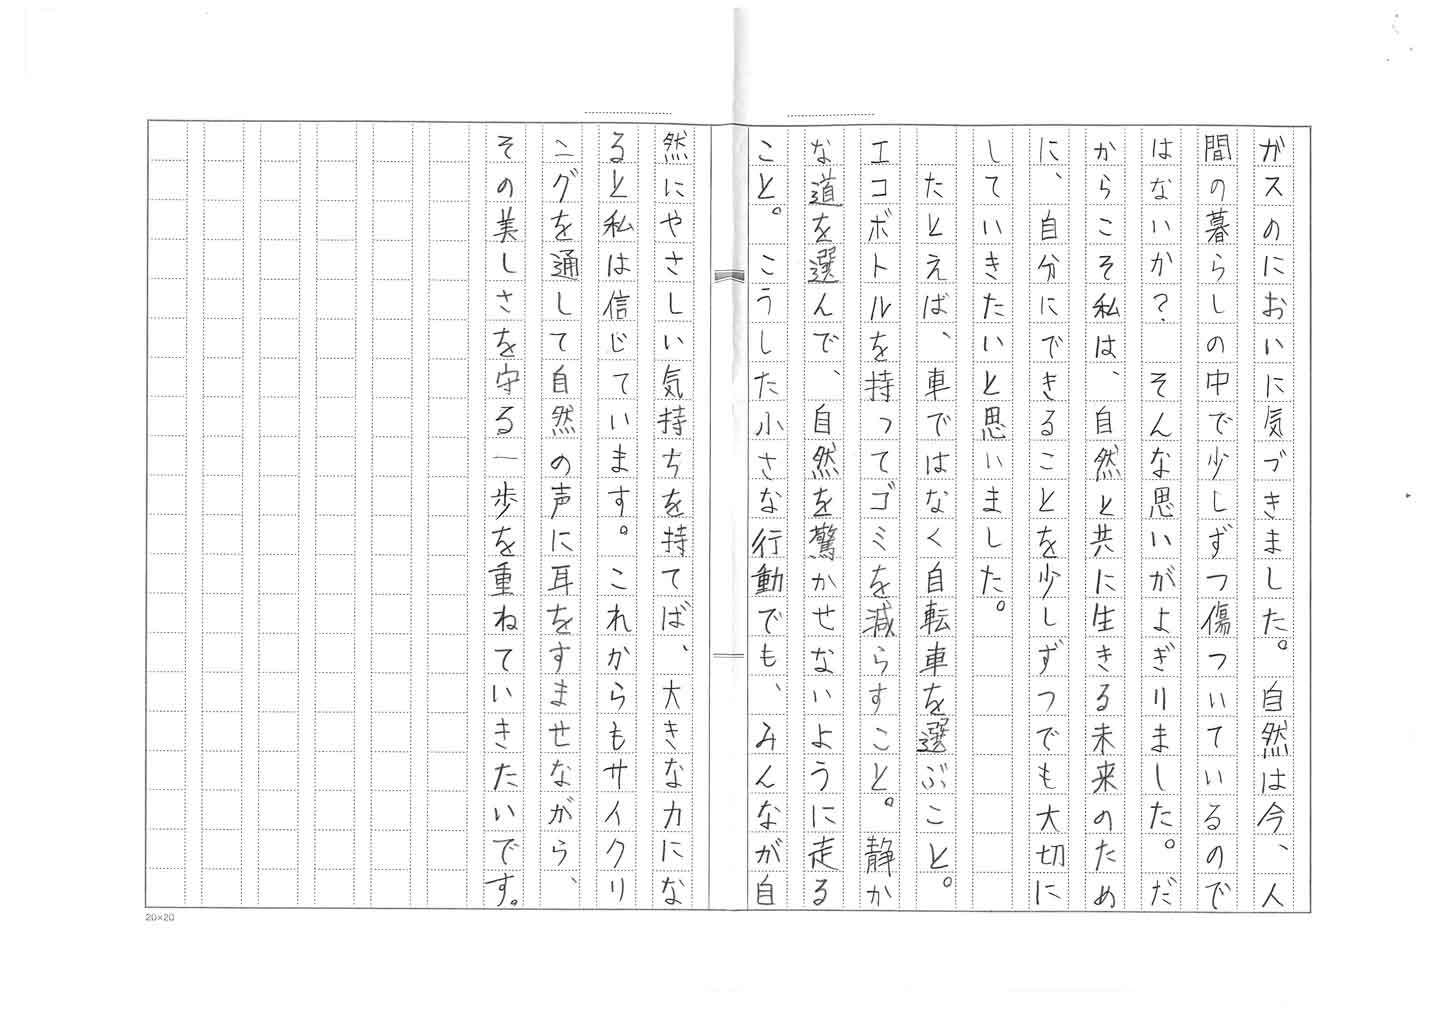 ガスのにおいに気づきました。自然は今、人
間の暮らしの中で少しずつ傷ついているので
はないか？　そんな思いがよぎりました。だ
からこそ私は、自然と共に生きる未来のため
に、自分にできることを少しずつでも大切に
していきたいと思いました。
　たとえば、車ではなく自転車を選ぶこと。
エコボトルを持ってゴミを減らすこと。静か
な道を選んで、自然を驚かせないように走る
こと。こうした小さな行動でも、みんなが自
然にやさしい気持ちを持てば、大きな力にな
ると私は信じています。これからもサイクリ
ニグを通して自然の声に耳をすませながら、
その美しさを守る一歩を重ねていきたいです。
20×20